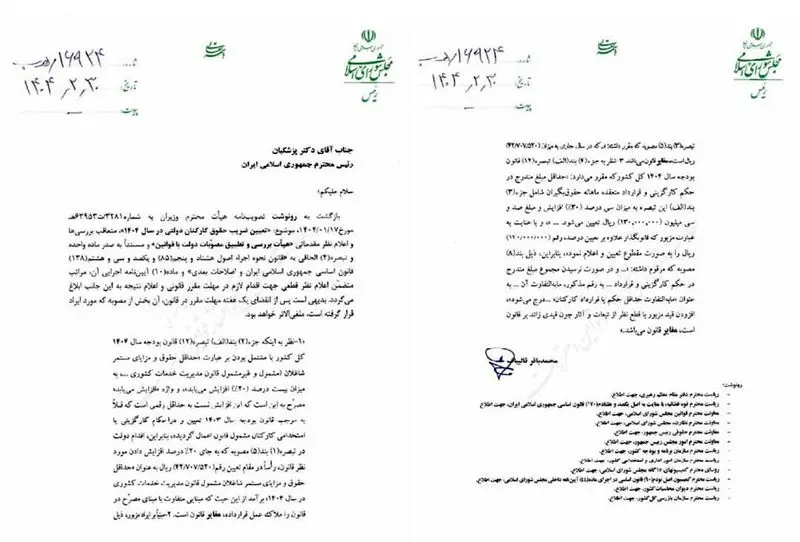 جمهوری اسلامی ایران
مجلس شورای اسلامی
رئیس
شماره: ۱۶۹۲۴
تاریخ: ۱۴۰۴/۲/۳۰
پیوست:
جناب آقای دکتر پزشکیان
رئیس محترم جمهوری اسلامی ایران
سلام علیکم؛
بازگشت به رونوشت تصویب‌نامه هیأت محترم وزیران به شماره ۳۲۸۱/ت۶۳۹۵۳هـ
مورخ ۱۴۰۴/۰۱/۱۷، موضوع: «تعیین ضریب حقوق کارکنان دولتی در سال ۱۴۰۴»، متعاقب بررسی‌ها
و اعلام نظر مقدماتی «هیأت بررسی و تطبیق مصوبات دولت با قوانین» و مستنداً به صدر ماده واحده
و تبصره(۴) الحاقی به «قانون نحوه اجراء اصول هشتاد و پنجم(۸۵) و یکصد و سی و هشتم(۱۳۸)
قانون اساسی جمهوری اسلامی ایران و اصلاحات بعدی» و ماده(۱۰) آیین‌نامه اجرایی آن، مراتب
متضمن اعلام نظر قطعی جهت اقدام لازم در مهلت مقرر قانونی و اعلام نتیجه به این جانب ابلاغ
می‌گردد. بدیهی است پس از انقضای یک هفته مهلت مقرر در قانون، آن بخش از مصوبه که مورد ایراد
قرار گرفته است، ملغی‌الاثر خواهد بود.
«۱-نظر به اینکه جزء(۲) بند(الف) تبصره(۱۲) قانون بودجه سال ۱۴۰۴
کل کشور با مشتمل بودن بر عبارت «حداقل حقوق و مزایای مستمر
شاغلان (مشمول و غیرمشمول قانون مدیریت خدمات کشوری ... به
میزان بیست درصد (۲۰٪) افزایش می‌یابد» و واژه «افزایش می‌یابد»
مصرّح به این است که این افزایش نسبت به حداقل رقمی است که قبلاً
به موجب قانون بودجه سال ۱۴۰۳ تعیین و در احکام کارگزینی یا
استخدامی کارکنان مشمول قانون اعمال گردیده، بنابراین، اقدام دولت
در تبصره(۱) بند(۵) مصوبه که به جای ۲۰٪ درصد افزایش دادن مورد
نظر قانون، رأساً در مقام تعیین رقم(۴۲/۷۰۷/۵۲۰) ریال به عنوان «حداقل
حقوق و مزایای مستمر شاغلان مشمول قانون مدیریت خدمات کشوری
در سال ۱۴۰۴» برآمد از این حیث که مبنایی متفاوت با مبنای مصرّح در
قانون را ملاک عمل قرارداده، مغایر قانون است. ۲- مبنیاً بر ایراد مزبور، ذیل
جمهوری اسلامی ایران
مجلس شورای اسلامی
رئیس
شماره: ۱۶۹۲۴
تاریخ: ۱۴۰۴/۲/۳۰
پیوست:
تبصره(۳) بند(۵) مصوبه که مقرر داشته: «... که در سال جاری به میزان (۴۲/۷۰۷/۵۲۰)
ریال است، مغایر قانون می‌باشد. ۳- نظر به جزء(۴) بند(الف) تبصره(۱۲) قانون
بودجه سال ۱۴۰۴ کل کشور که مقرر می‌دارد: «حداقل مبلغ مندرج در
حکم کارگزینی و قرارداد منعقده ماهانه حقوق‌بگیران شامل جزء(۳)
بند(الف) این تبصره به میزان سی درصد (۳۰٪) افزایش و مبلغ صد و
سی میلیون (۱۳۰,۰۰۰,۰۰۰) ریال تعیین می‌شود. ...» و با عنایت به
عبارت مزبور که قانونگذار علاوه بر تعیین درصد، رقم (۱۳۰/۰۰۰/۰۰۰)
ریال را به صورت مقطوع تعیین و اعلام نموده، بنابراین، ذیل بند(۸)
مصوبه که مرقوم داشته: «... و در صورت نرسیدن مجموع مبلغ مندرج
در حکم کارگزینی و قرارداد ... به رقم مذکور، مابه‌التفاوت آن ... به
عنوان «مابه‌التفاوت حداقل حکم یا قرارداد کارکنان» ...درج می‌شود»،
افزودن قید مزبور با قطع نظر از تبعات و آثار چون قیدی زائد بر قانون
است، مغایر قانون می‌باشد.»
محمدباقر قالیباف
رونوشت:
ریاست محترم دفتر مقام معظم رهبری، جهت اطلاع.
ریاست محترم قوه قضائیه، با عنایت به اصل یکصد و هفتادم(۱۷۰) قانون اساسی جمهوری اسلامی ایران، جهت اطلاع.
معاونت محترم قوانین مجلس شورای اسلامی، جهت اطلاع.
معاونت محترم نظارت، مجلس شورای اسلامی، جهت اطلاع.
معاونت محترم حقوقی رییس جمهور، جهت اطلاع.
معاونت محترم امور مجلس رییس جمهور، جهت اطلاع.
ریاست محترم سازمان برنامه و بودجه کشور، جهت اطلاع.
ریاست محترم سازمان امور اداری و استخدامی کشور، جهت اطلاع.
روسای محترم کمیسیونهای ۱۴گانه مجلس شورای اسلامی، جهت اطلاع.
ریاست محترم کمیسیون اصل نودم(۹۰) قانون اساسی در اجرای ماده(۴۴) آیین‌نامه داخلی مجلس شورای اسلامی، جهت اطلاع.
ریاست محترم دیوان محاسبات کشور، جهت اطلاع.
ریاست محترم سازمان بازرسی کل کشور، جهت اطلاع.